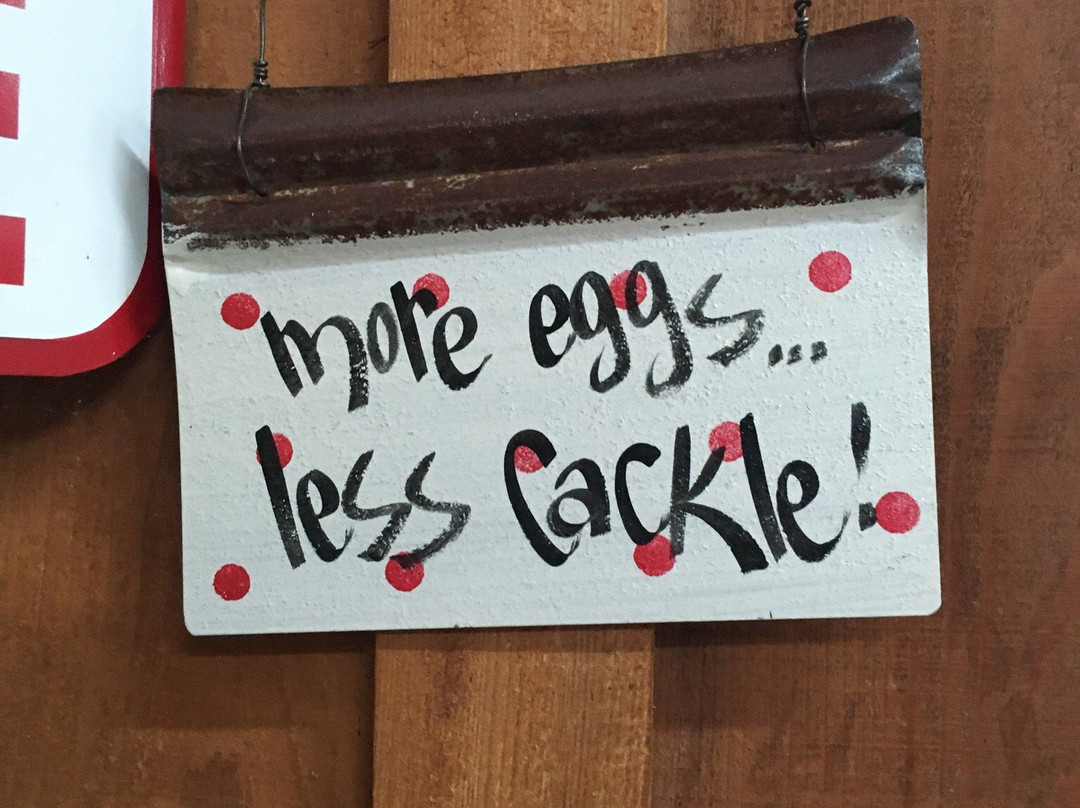 more eggs...
less cackle!